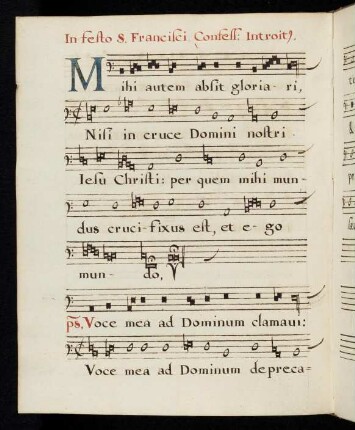 In festo S. Francisci Confess: Introit9.
Mihi autem absit gloria-ri,
Nisi in cruce Domini nostri
Iesu Christi: per quem mihi mun-
dus cruci-fixus est, et e-go
mun-do,
ps, Voce mea ad Dominum clamaui:
Voce mea ad Dominum depreca=